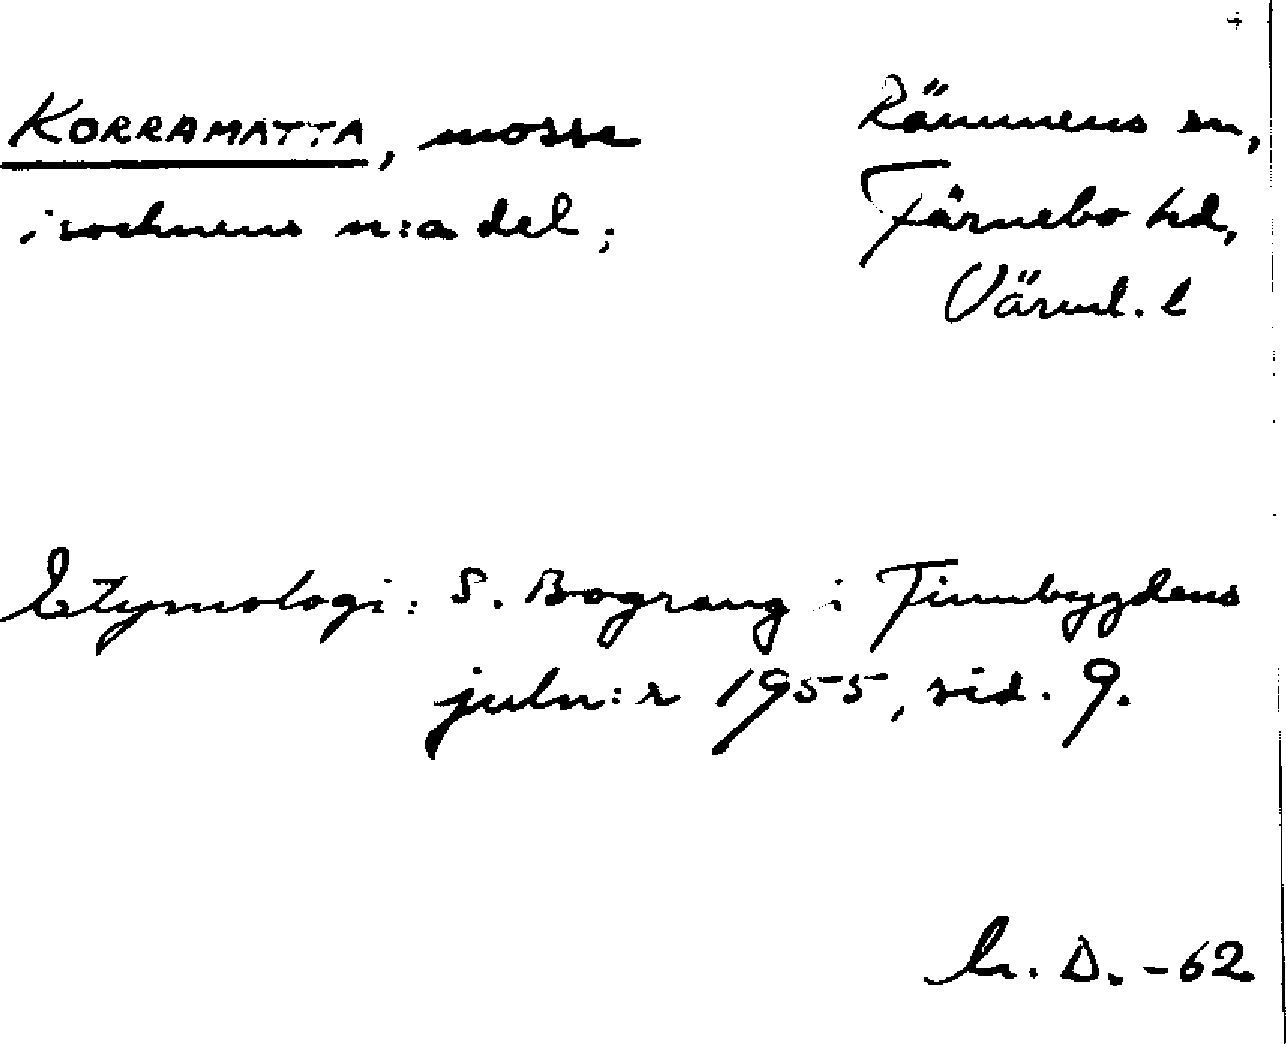 KORRAMATTA, mosse
i socknens n:a del;
Rämmens sn,
Färnebo hd,
Värml. l
Etymologi: S. Bograng i Finnbygdens
juln:r 1955, sid. 9.
D. -62